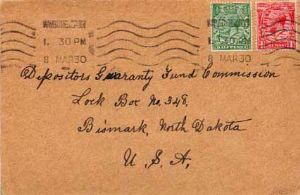 1. 30 PM
8 MAR 30
1. 30 PM
8 MAR 30
Depositors Guaranty Fund Commission
Lock Box No. 348.
Bismark, North Dakota
U. S. A.